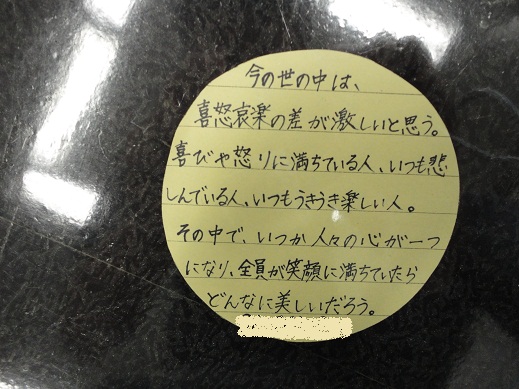 今の世の中は、
喜怒哀楽の差が激しいと思う。
喜びや怒りに満ちている人、いつも悲
しんでいる人、いつもうきうき楽しい人。
その中で、いつか人々の心が一つ
になり、全員が笑顔に満ちていたら
どんなに美しいだろう。